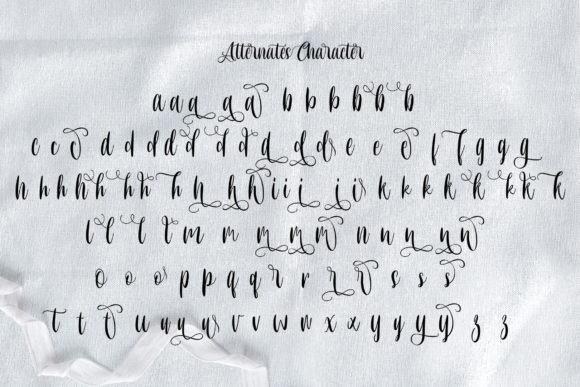 Alternates Character
a a a a a b b b b b b
c c c d d d d d d d d d e e e f f g g g
h h h h h h h h h h h i i i j j i k k k k k k k k
l l l l m m m m m n n n n n
o o o p p q q r r r r s s s
t t t u u u u v v w n x x x x y y y y z z